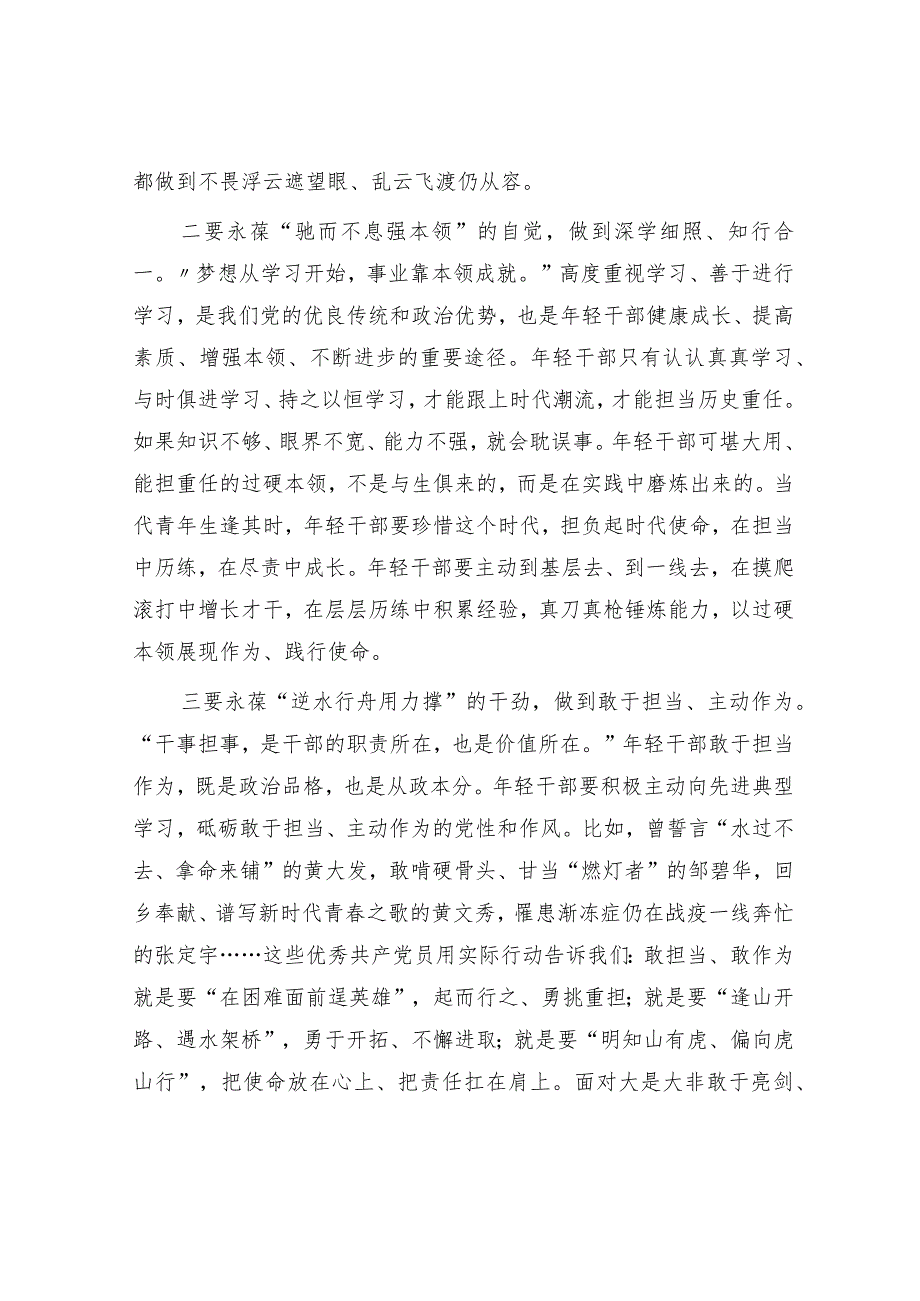 都做到不畏浮云遮望眼、乱云飞渡仍从容。
二要永葆“驰而不息强本领”的自觉，做到深学细照、知行合
一。〃梦想从学习开始，事业靠本领成就。”高度重视学习、善于进行
学习，是我们党的优良传统和政治优势，也是年轻干部健康成长、提高
素质、增强本领、不断进步的重要途径。年轻干部只有认认真真学习、
与时俱进学习、持之以恒学习，才能跟上时代潮流，才能担当历史重任。
如果知识不够、眼界不宽、能力不强，就会耽误事。年轻干部可堪大用、
能担重任的过硬本领，不是与生俱来的，而是在实践中磨炼出来的。当
代青年生逢其时，年轻干部要珍惜这个时代，担负起时代使命，在担当
中历练，在尽责中成长。年轻干部要主动到基层去、到一线去，在摸爬
滚打中增长才干，在层层历练中积累经验，真刀真枪锤炼能力，以过硬
本领展现作为、践行使命。
三要永葆“逆水行舟用力撑”的干劲，做到敢于担当、主动作为。
“干事担事，是干部的职责所在，也是价值所在。”年轻干部敢于担当
作为，既是政治品格，也是从政本分。年轻干部要积极主动向先进典型
学习，砥砺敢于担当、主动作为的党性和作风。比如，曾誓言“水过不
去、拿命来铺”的黄大发，敢啃硬骨头、甘当“燃灯者”的邹碧华，回
乡奉献、谱写新时代青春之歌的黄文秀，罹患渐冻症仍在战疫一线奔忙
的张定宇……这些优秀共产党员用实际行动告诉我们：敢担当、敢作为
就是要“在困难面前逞英雄”，起而行之、勇挑重担；就是要“逢山开
路、遇水架桥”，勇于开拓、不懈进取；就是要“明知山有虎、偏向虎
山行”，把使命放在心上、把责任扛在肩上。面对大是大非敢于亮剑、